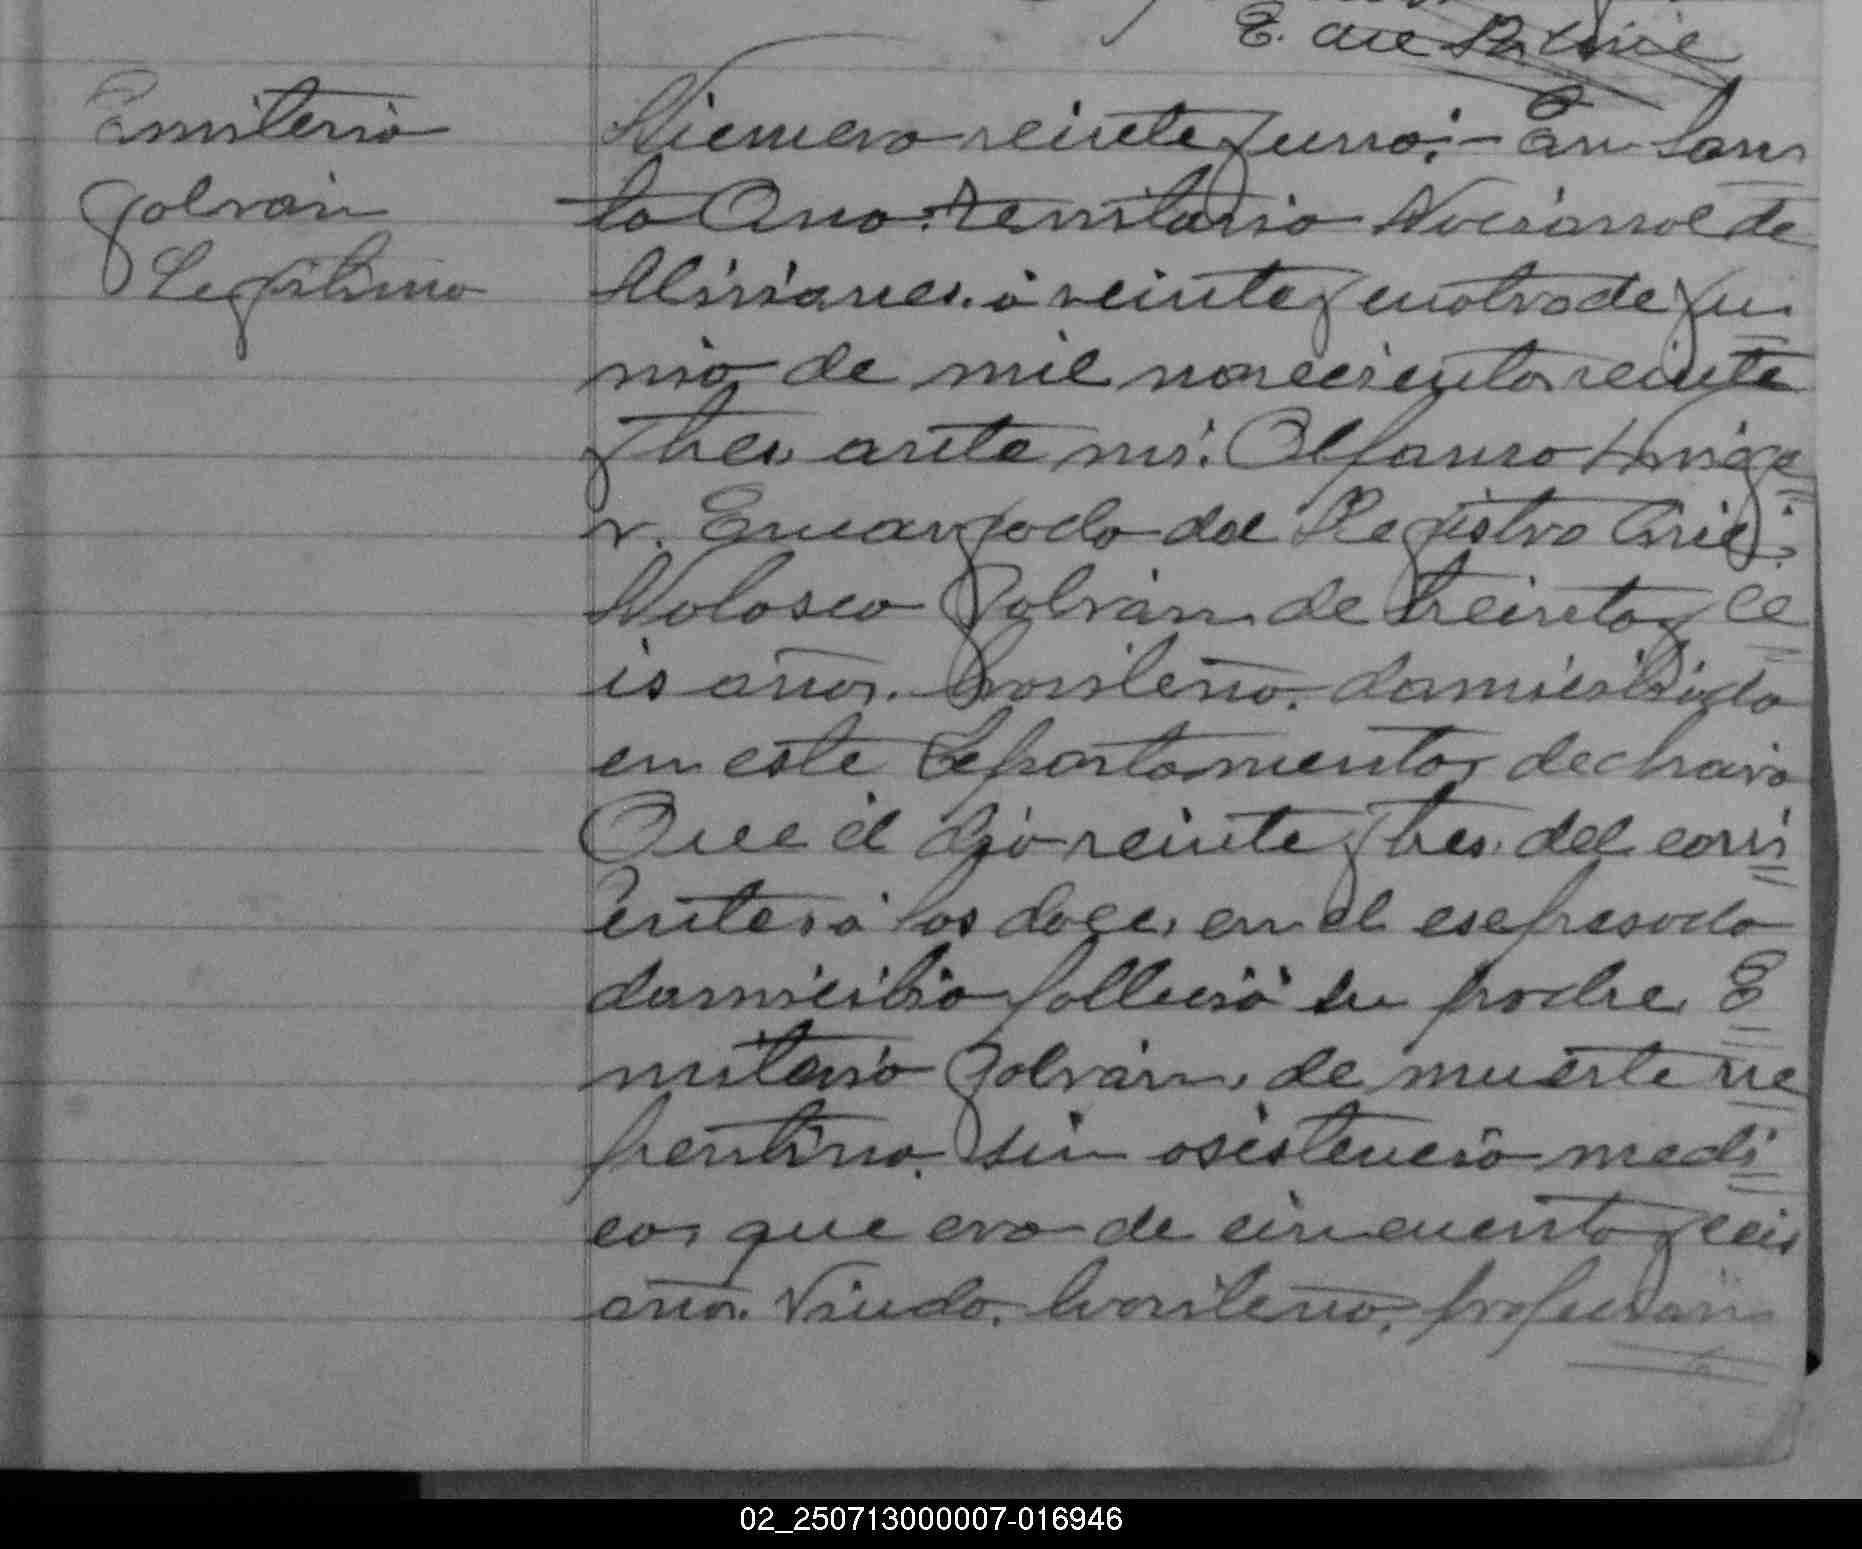 E. del R. Civil
Emiterio
Galván
Legitimo
Número veinte y uno:- En San
ta Ana. Territorio Nacional de
Misiones. á veinte y cuatro de Ju
nio de mil novecientos veinte
y tres, ante mi:
r. Encargado del Registro Civil;
Nolasco Galván de treinta y se
is años. brasileño. domiciliado
en este Departamento, declaró
Que él día veinte y tres. del corri
ente, á las doce, en el esepresado
domicilio falleció su padre, E
miterio Galván, de muerte re
pentina. sin asistencia medi
ca, que era de cincuenta y seis
años. Viudo, brasileño,
02_250713000007-016946